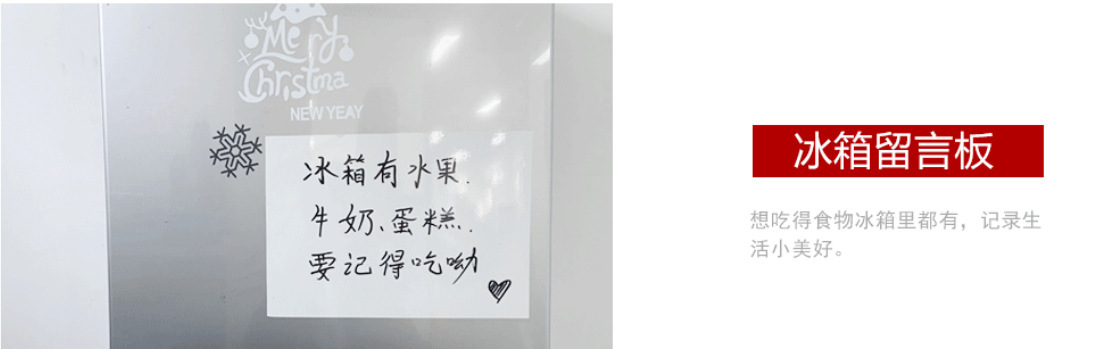 Merry
Christma
NEW YEAY
冰箱有水果.
牛奶、蛋糕.
要记得吃呦
冰箱留言板
想吃得食物冰箱里都有，记录生
活小美好。